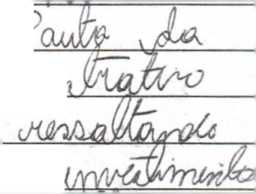 pauta da
trativo
ressaltando
investimento